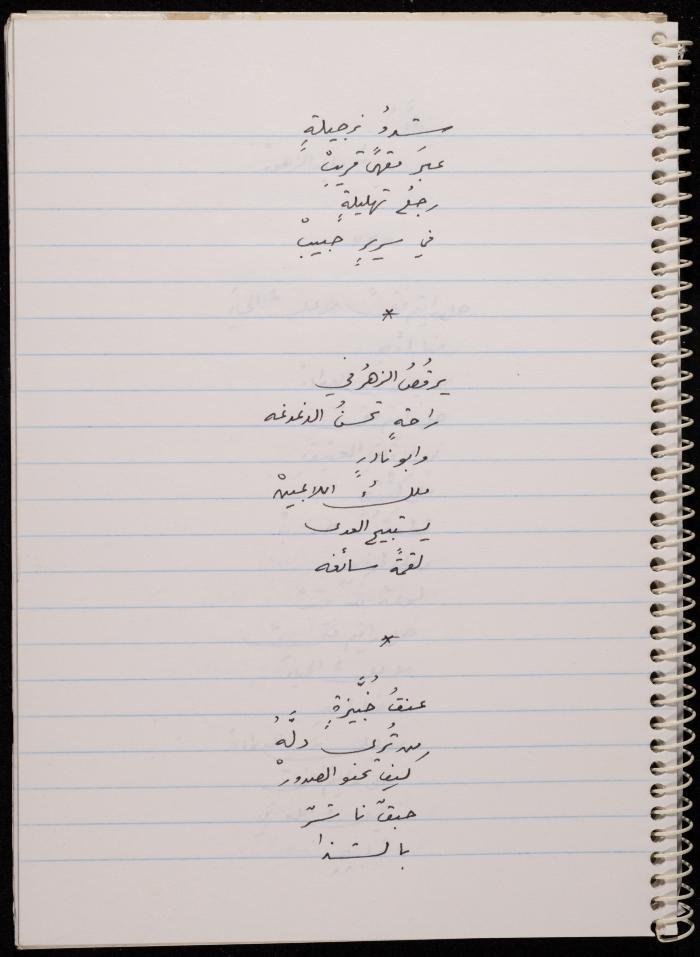 شدوُ نرجيلةٍ
عبرَ مقهىً قريبْ
رجعُ تهليلةٍ
في سريرٍ حبيبْ
*
يرقُصُ الزهرُ في
راحةٍ تحسنُ الدغدغه
وابو نادرٍ
ملكُ اللاعبينْ
يستبيح المدى
لقمةً سائغه
*
عنقُ خُبَّيزةٍ
من تُرى دلَّهُ
كيف تحنو الصدورْ
حبقٌ ناشرٌ
بالشذا